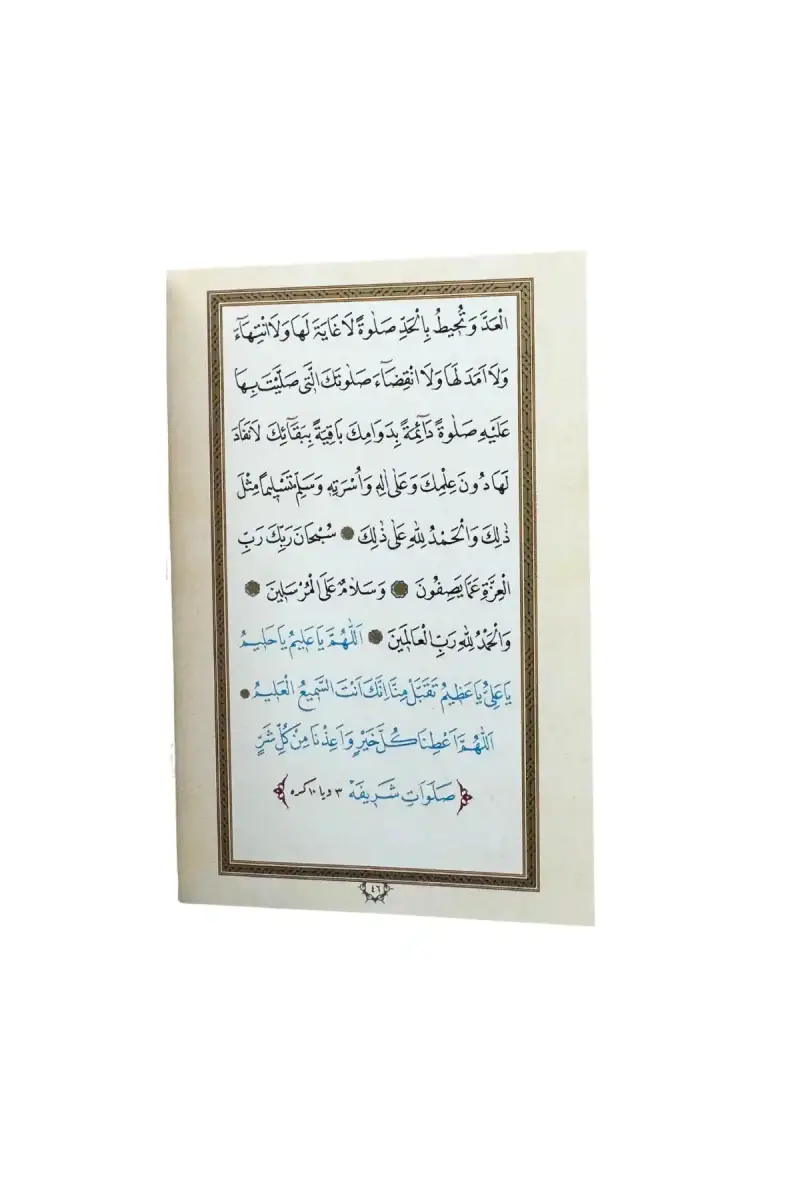 الْعَدَّ وَتُحِيطُ بِالْحَدِّ صَلٰوةً لَا غَايَةَ لَهَا وَلَا انْتِهَآءَ
وَلَا اَمَدَ لَهَا وَلَا انْقِضَآءَ صَلٰوتَكَ الَّتِي صَلَّيْتَ بِهَا
عَلَيْهِ صَلٰوةً دَآئِمَةً بِدَوَامِكَ بَاقِيَةً بِبَقَآئِكَ لَا نَفَادَ
لَهَا دُونَ عِلْمِكَ وَعَلٰى اٰلِهِ وَاُسْرَتِهِ وَسَلِّمْ تَسْلِيمًا مِثْلَ
ذٰلِكَ وَالْحَمْدُ لِلّٰهِ عَلٰى ذٰلِكَ سُبْحَانَ رَبِّكَ رَبِّ
الْعِزَّةِ عَمَّا يَصِفُونَ وَسَلَامٌ عَلَى الْمُرْسَلِينَ
وَالْحَمْدُ لِلّٰهِ رَبِّ الْعَالَمِينَ اَللّٰهُمَّ يَا عَلِيمُ يَا حَلِيمُ
يَا عَلِيُّ يَا عَظِيمُ تَقَبَّلْ مِنَّا اِنَّكَ اَنْتَ السَّمِيعُ الْعَلِيمُ
اَللّٰهُمَّ اَعْطِنَا كُلَّ خَيْرٍ وَاَعِذْنَا مِنْ كُلِّ شَرٍّ
صَلَوَاتِ شَرِيفَهْ ٣ ويا ١٠ كره
٤٦